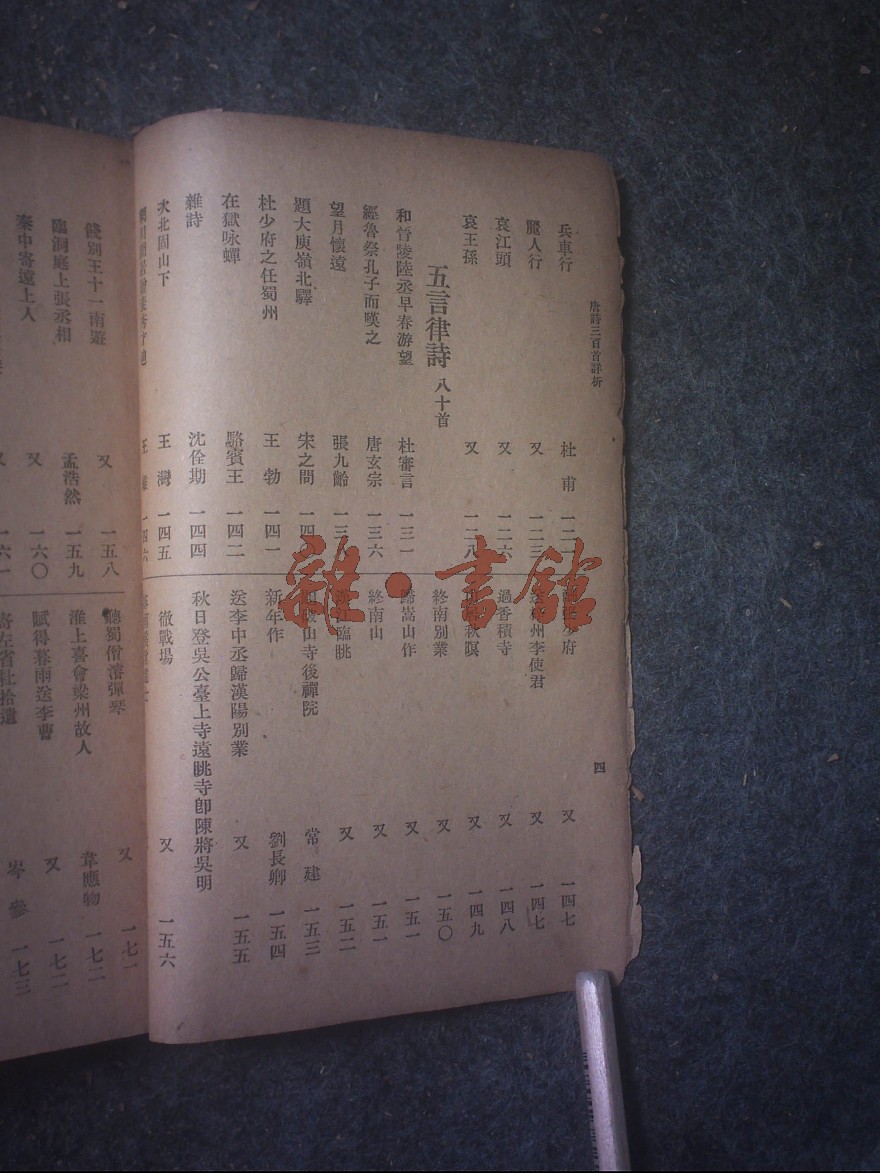 唐詩三百首詳析
四
兵車行 杜甫
麗人行 又 一二三
哀江頭 又 一二六
哀王孫 又 一二八
五言律詩 八十首
和晉陵陸丞早春游望 杜審言 一三一
經魯祭孔子而嘆之 唐玄宗 一三六
望月懷遠 張九齡
題大庾嶺北驛 宋之問
杜少府之任蜀州 王勃 一四一
在獄咏蟬 駱賓王 一四二
雜詩 沈佺期 一四四
次北固山下 王灣 一四五
一四六
少府 又 一四七
州李使君 又 一四七
過香積寺 又 一四八
秋暝 又 一四九
終南別業 又 一五〇
歸嵩山作 又 一五一
終南山 又 一五一
臨眺 又 一五二
山寺後禪院 常建 一五三
新年作 劉長卿 一五四
送李中丞歸漢陽別業 又 一五五
秋日登吳公臺上寺遠眺寺卽陳將吳明
徹戰場 又 一五六
餞別王十一南遊 又 一五八
臨洞庭上張丞相 孟浩然 一五九
秦中寄遠上人 又 一六〇
又 一六一
聽蜀僧濬彈琴 又 一七一
淮上喜會梁州故人 韋應物 一七二
賦得暮雨送李曹 又 一七二
寄左省杜拾遺 岑參 一七三
雜·書館